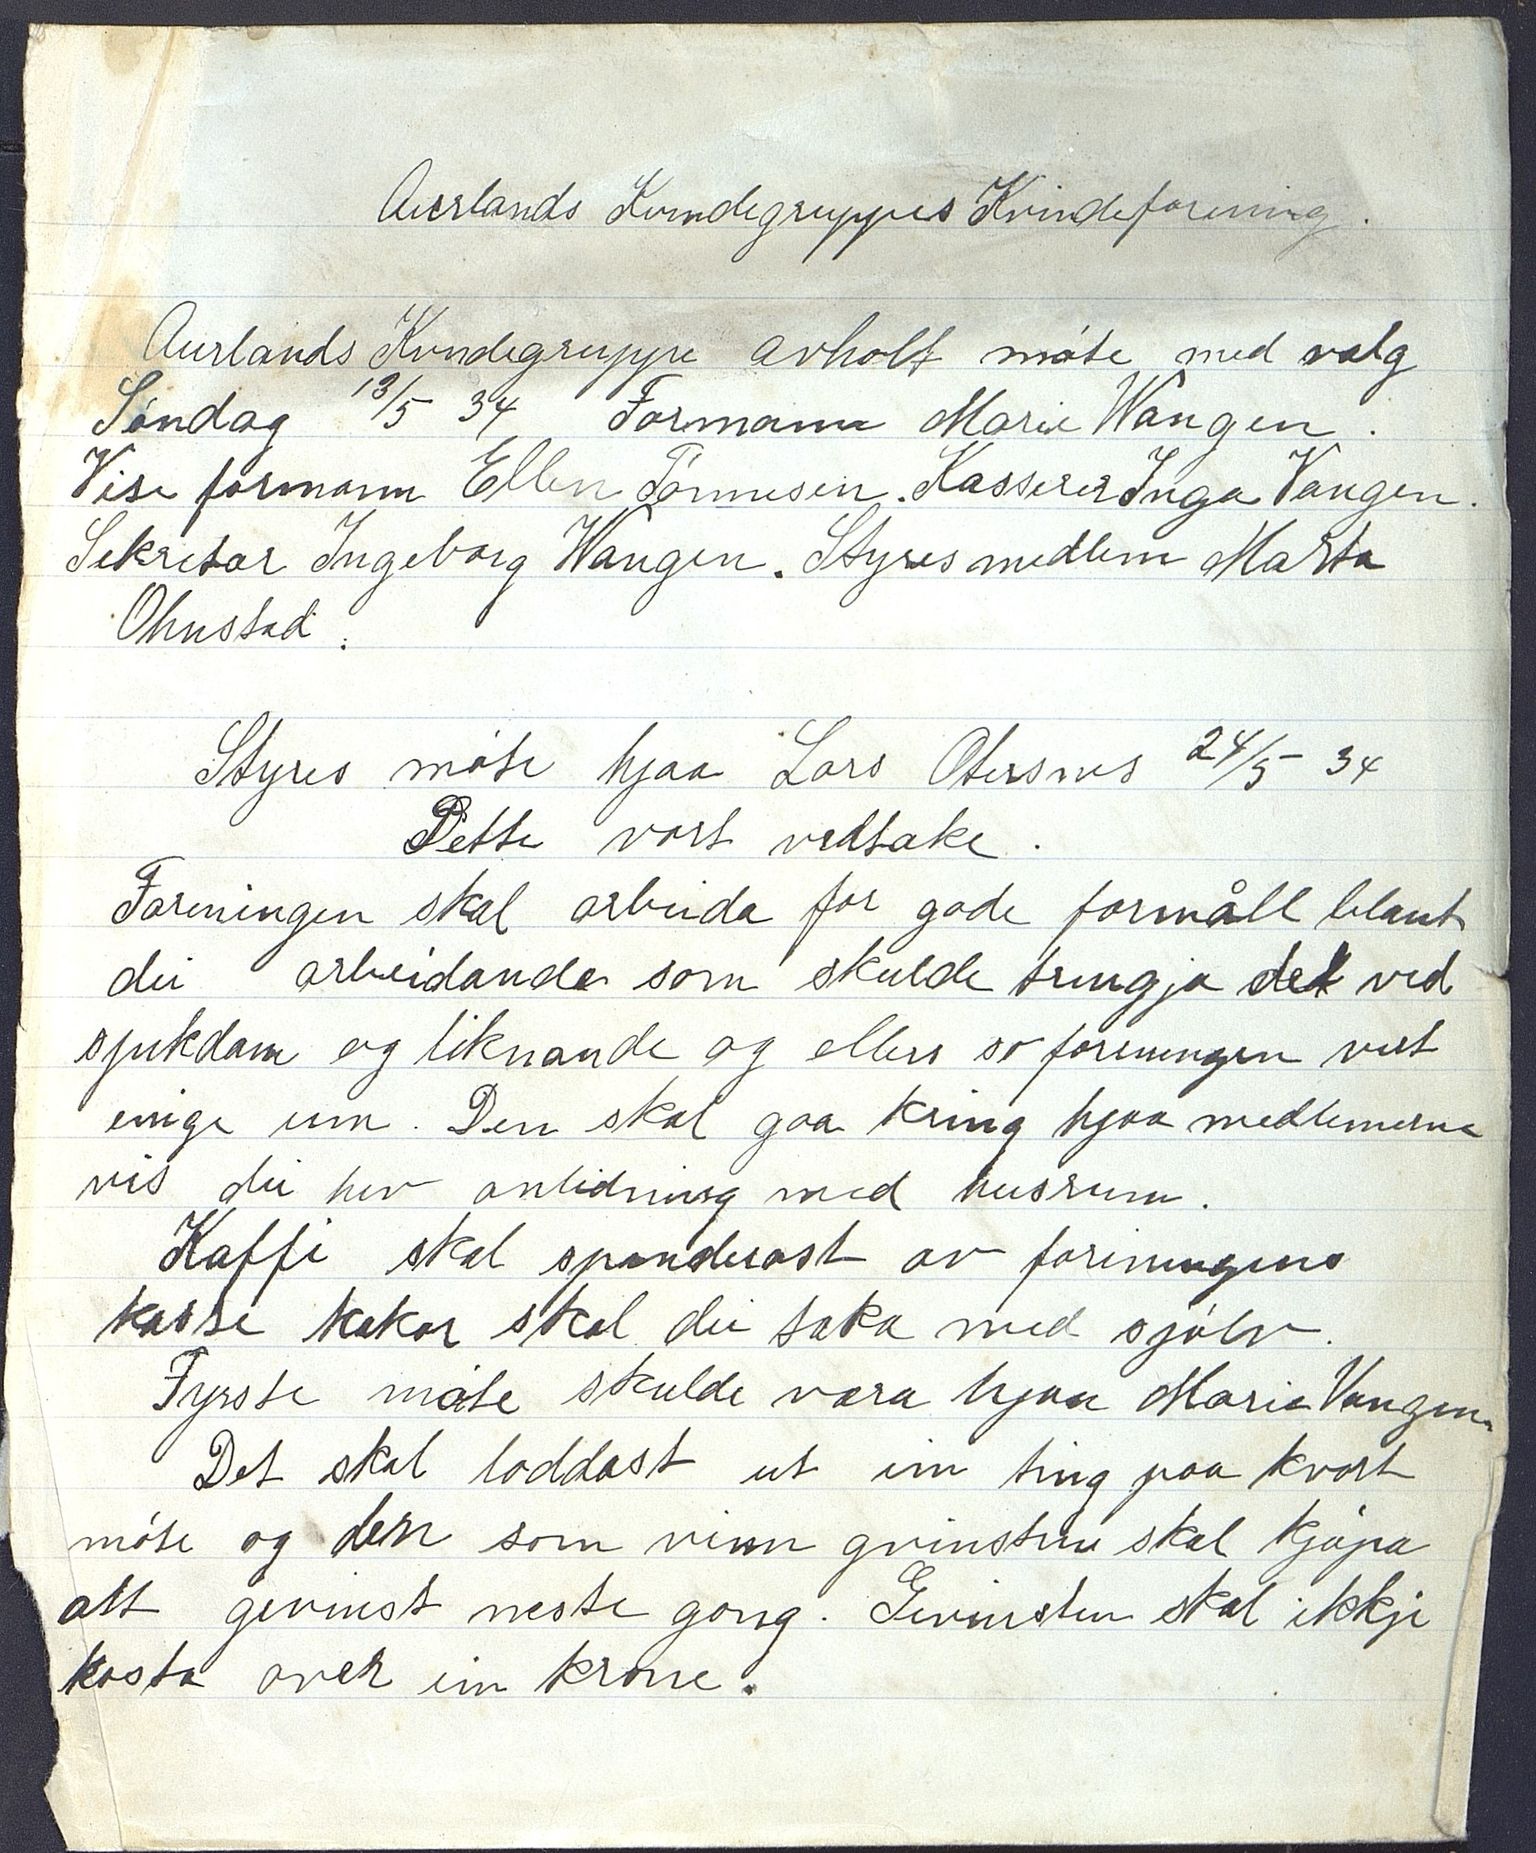 Aurlands Kvindegruppes Kvindeforening.
Aurlands Kvindegruppe avholt møte med valg
Søndag 13/5 34 Formann Marie Wangen.
Vise formann Ellen Tønnesen. Kasserer Inga Vangen.
Sekretær Ingeborg Wangen. Styresmedlem Marta
Ohnstad.
Styres møte hjaa Lars Oternes 24/5 34
Dette vart vedtake.
Foreningen skal arbeida for gode formåll blant
dei arbeidande som skulde trengja det ved
sjukdom og liknande og ellers so foreningen vert
einige um. Den skal gaa kring hjaa medlemerne
vis dei hev anledning med husrum.
Kaffi skal spanderast av foreningens
kasse kakor skal dei taka med sjølv.
Fyrste møte skulde vera hjaa Marie Vangen.
Det skal loddast ut ein ting paa kvart
møte og den som vinn gevinsten skal kjøpa
att gevinst neste gong. Gevinsten skal ikkje
kosta over ein krone.